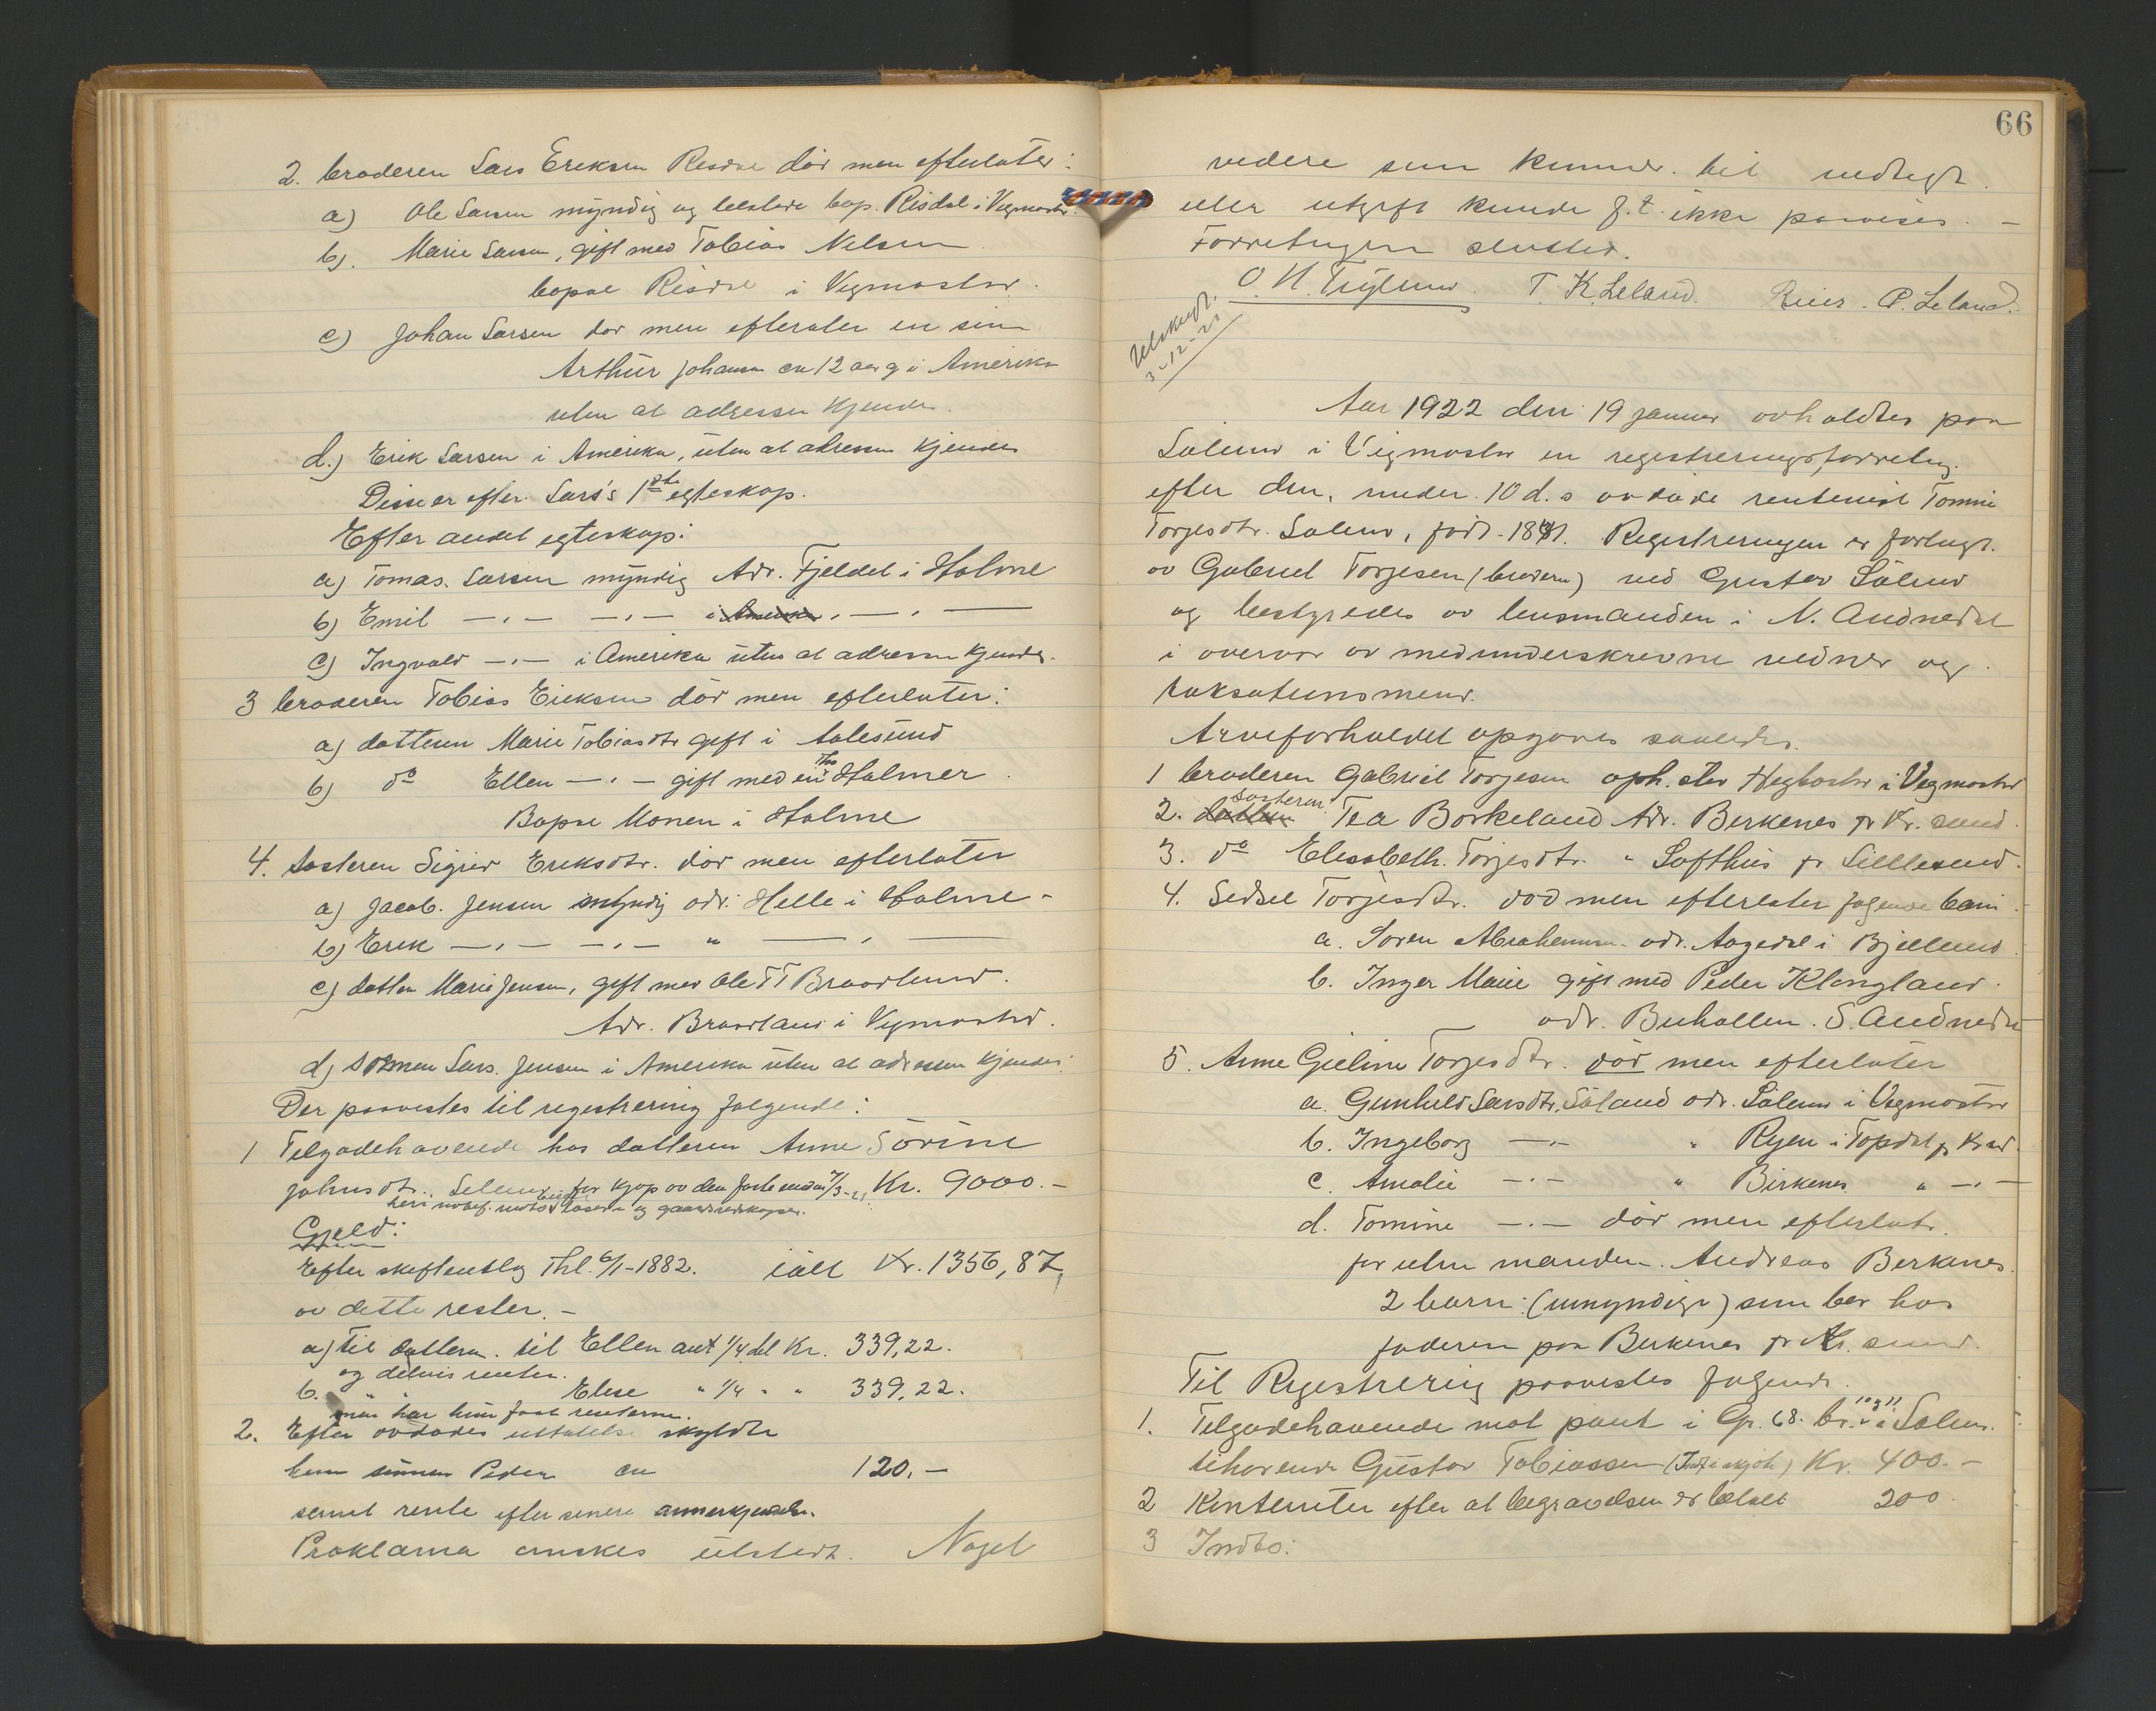 2. broderen Lars Eriksen Risdal död men efterlater:
a) Ole Larsen myndig og bop. Risdal i Vigmostad.
b). Marie Larsen, gift med Tobias Nilsen
bopæl Risdal i Vigmostad.
c) Johan Larsen död men efterlater en sön
Arthur Johansen ca 12 aar g i Amerika
uten at adressen kjendes.
d.) Erik Larsen i Amerika, uten at adressen kjendes
Disse er efter Lars's 1ste egteskap.
Efter andet egteskap:
a) Tomas Larsen myndig Adr. Fjeldal i Holme
b) Emil —.— —.— i —.—
c) Ingvald —.— i Amerika uten at adressen kjendes.
3 broderen Tobias Eriksen död men efterlater:
a) datteren Marie Tobiasdtr gift i Aalesund
b) do Ellen —.— gift med en Ths Holmer
Bopæl Monen i Holme
4. sösteren Sigrid Eriksdtr. död men efterlater
a) Jacob Jensen myndig adr. Helle i Holme -
b) Erik —.— —.— " —.—
c) datter Marie Jensen, gift med Ole TT Braadland.
Adr. Braadland i Vigmostad.
d) sönnen Lars Jensen i Amerika uten at adressen kjendes.
Der paavistes til registrering følgende:
1 Tilgodehavende hos datteren Anne Sörine
Johnsdtr. for kjøp av den faste eiendom 7/3-21 Kr. 9000.-
heri og gaardsredskaper.
Gjeld:
Efter skifteutlæg Thl. 6/1-1882. ialt Kr. 1356,87,
av dette rester.-
a) til datteren til Ellen 1/4 del Kr. 339,22.
og delvis renter.
b. Elise " 1/4 " " 339,22.
men har hun faat renterne.
2. Efter avdödes uttalelse skyldte
hun sönnen Peder ca 120,-
samt rente efter senere annerkjendelse.
Proklama ønskes utstedt. Noget
66
videre som kunde bli vedlagt
eller utgift kunde f.t. ikke paavises.—
Forretningen sluttet.
O. N. Trygsland. T. K. Leland. Reier P. Leland.
Utskrift.
3-12-21
Aar 1922 den 19 januar avholdtes paa
Sölend i Vigmostad en registreringsforretning
efter den under 10 d.s avdöde rentenist Tomine
Torjesdtr. Solend, född 1841. Registreringen er forlangt
av Gabriel Torjesen (broderen) ved Gustav Sölend
og bestyredes av lensmanden i N. Audnedal
i overvær av medunderskrevne vidner og
taksationsmend.
Arveforholdet opgaves saaledes.
1 broderen Gabriel Torjesen oph. sted Hegbostad i Vigmostad
2. datteren sösteren Tea Borkeland Adr. Berkenes pr Kr. sand
3. do Elisabeth Torjesdtr. " Lofthus pr Lillesand.
4. Sidsel Torjesdtr. död men efterlater følgende barn
a. Soren Abrahamsen adr. Aagedal i Bjelland
b. Inger Marie gift med Peder Klingland
adr. Buhallen. S. Audnedal
5. Anne Gieline Torjesdtr. död men efterlater
a. Gunhild Larsdtr. Söland adr. Sölend i Vigmostad
b. Ingeborg —.— " Ryen i Topdal pr Kr.sand
c. Amalie —.— " Birkenes " —.—
d. Tomine —.— död men efterlater
foruten manden Andreas Berkenes
2 barn: (umyndige) som bor hos
faderen paa Berkenes pr Kr. sand.
Til Registrering paavistes følgende.
1. Tilgodehavende mot pant i Gr. 68. br. 10 og 11 i Solend.
tilhørende Gustav Tobiassen Kr. 400.-
2 Kontanter efter at begravelsen er betalt 200
3 Indbo: